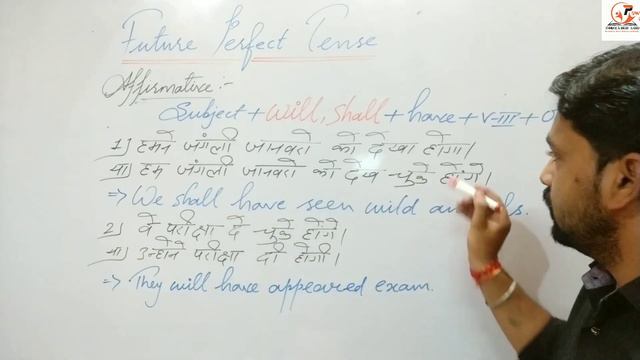 Future Perfect Tense
Affirmative :-
Subject + will, shall + have + V-III + O
1) हमने जंगली जानवरों को देखा होगा।
या) हम जंगली जानवरों को देख चुके होंगे।
⇒ We shall have seen wild an ls.
2) वे परीक्षा दे चुके होंगे।
या) उन्होंने परीक्षा दी होगी।
⇒ They will have appeared exam.